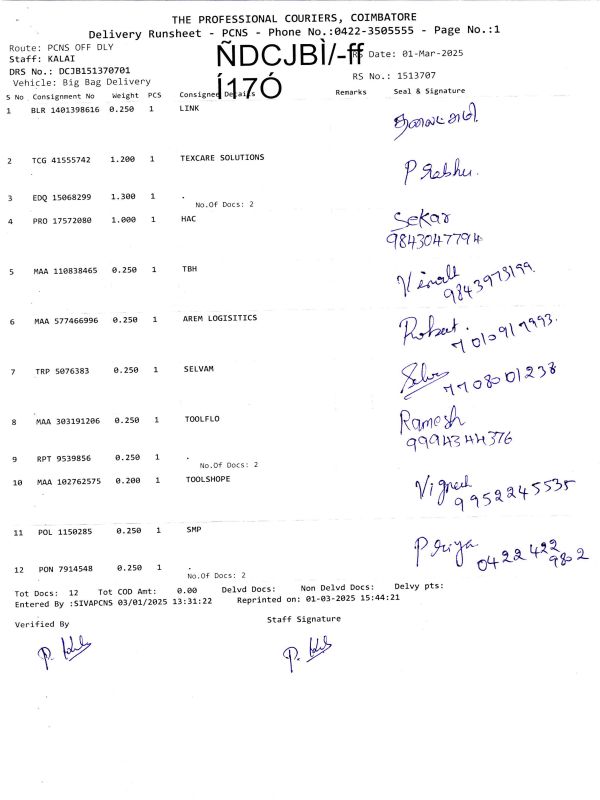 THE PROFESSIONAL COURIERS, COIMBATORE
Delivery Runsheet - PCNS - Phone No.:0422-3505555 - Page No.:1
Route: PCNS OFF DLY
ÑDCJBÌ/-ff
Staff: KALAI RS Date: 01-Mar-2025
DRS No.: DCJB151370701
Í17Ó RS No.: 1513707
Vehicle: Big Bag Delivery
S No Consignment No Weight PCS Consignee Details Remarks Seal & Signature
1 BLR 1401398616 0.250 1 LINK
2 TCG 41555742 1.200 1 TEXCARE SOLUTIONS Prabhu.
3 EDQ 15068299 1.300 1 .
No.Of Docs: 2
4 PRO 17572080 1.000 1 HAC Sekar
9843047794
5 MAA 110838465 0.250 1 TBH
9843973199
6 MAA 577466996 0.250 1 AREM LOGISITICS Robat.
7010917993.
7 TRP 5076383 0.250 1 SELVAM Selva
7708001238
8 MAA 303191206 0.250 1 TOOLFLO Ramesh
9994344376
9 RPT 9539856 0.250 1 .
No.Of Docs: 2
10 MAA 102762575 0.200 1 TOOLSHOPE Vignesh
9952245535
11 POL 1150285 0.250 1 SMP Priya
0422 422
9802
12 PON 7914548 0.250 1 .
No.Of Docs: 2
Tot Docs: 12 Tot COD Amt: 0.00 Delvd Docs: Non Delvd Docs: Delvy pts:
Entered By :SIVAPCNS 03/01/2025 13:31:22 Reprinted on: 01-03-2025 15:44:21
Verified By Staff Signature